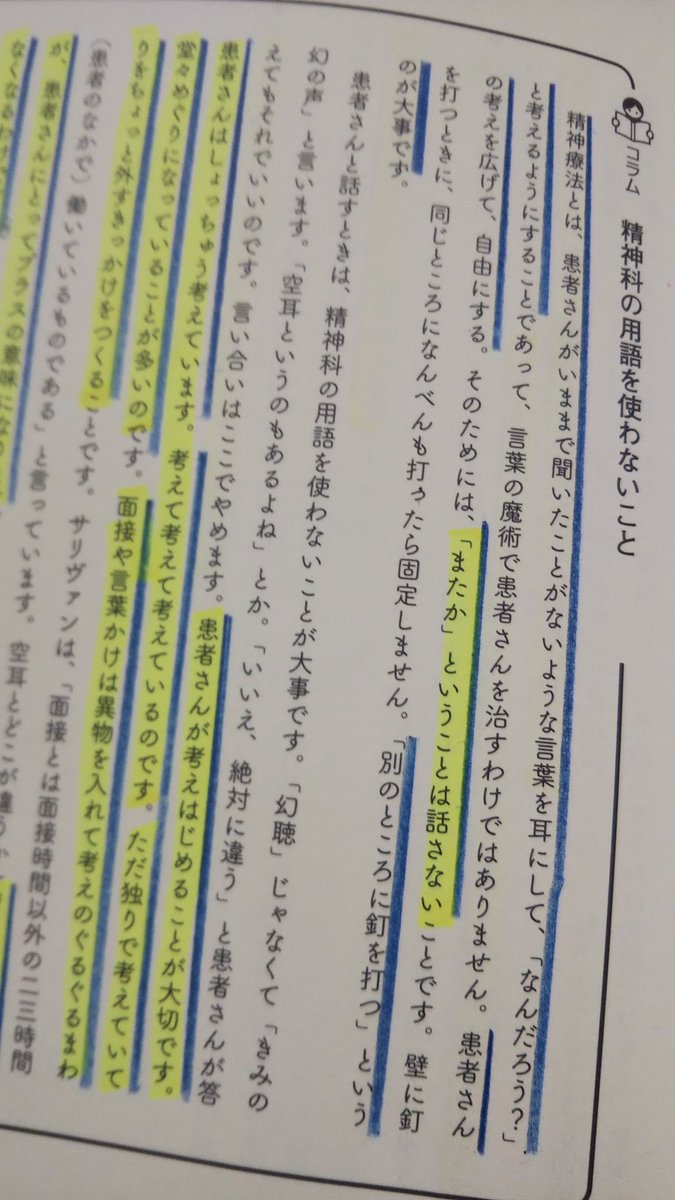 コラム 精神科の用語を使わないこと
精神療法とは、患者さんがいままで聞いたことがないような言葉を耳にして、「なんだろう？」
と考えるようにすることであって、言葉の魔術で患者さんを治すわけではありません。患者さん
の考えを広げて、自由にする。そのためには、「またか」ということは話さないことです。壁に釘
を打つときに、同じところになんべんも打ったら固定しません。「別のところに釘を打つ」という
のが大事です。
患者さんと話すときは、精神科の用語を使わないことが大事です。「幻聴」じゃなくて「きみの
幻の声」と言います。「空耳というのもあるよね」とか。「いいえ、絶対に違う」と患者さんが答
えてもそれでいいのです。言い合いはここでやめます。患者さんが考えはじめることが大切です。
患者さんはしょっちゅう考えています。考えて考えて考えているのです。ただ独りで考えていて
堂々めぐりになっていることが多いのです。面接や言葉かけは異物を入れて考えのぐるぐるまわ
りをちょっと外すきっかけをつくることです。サリヴァンは、「面接とは面接時間以外の二三時間
（患者のなかで）働いているものである」と言っています。空耳とどこが違う
が、患者さんにとってプラスの意味になり
なくなるわけで